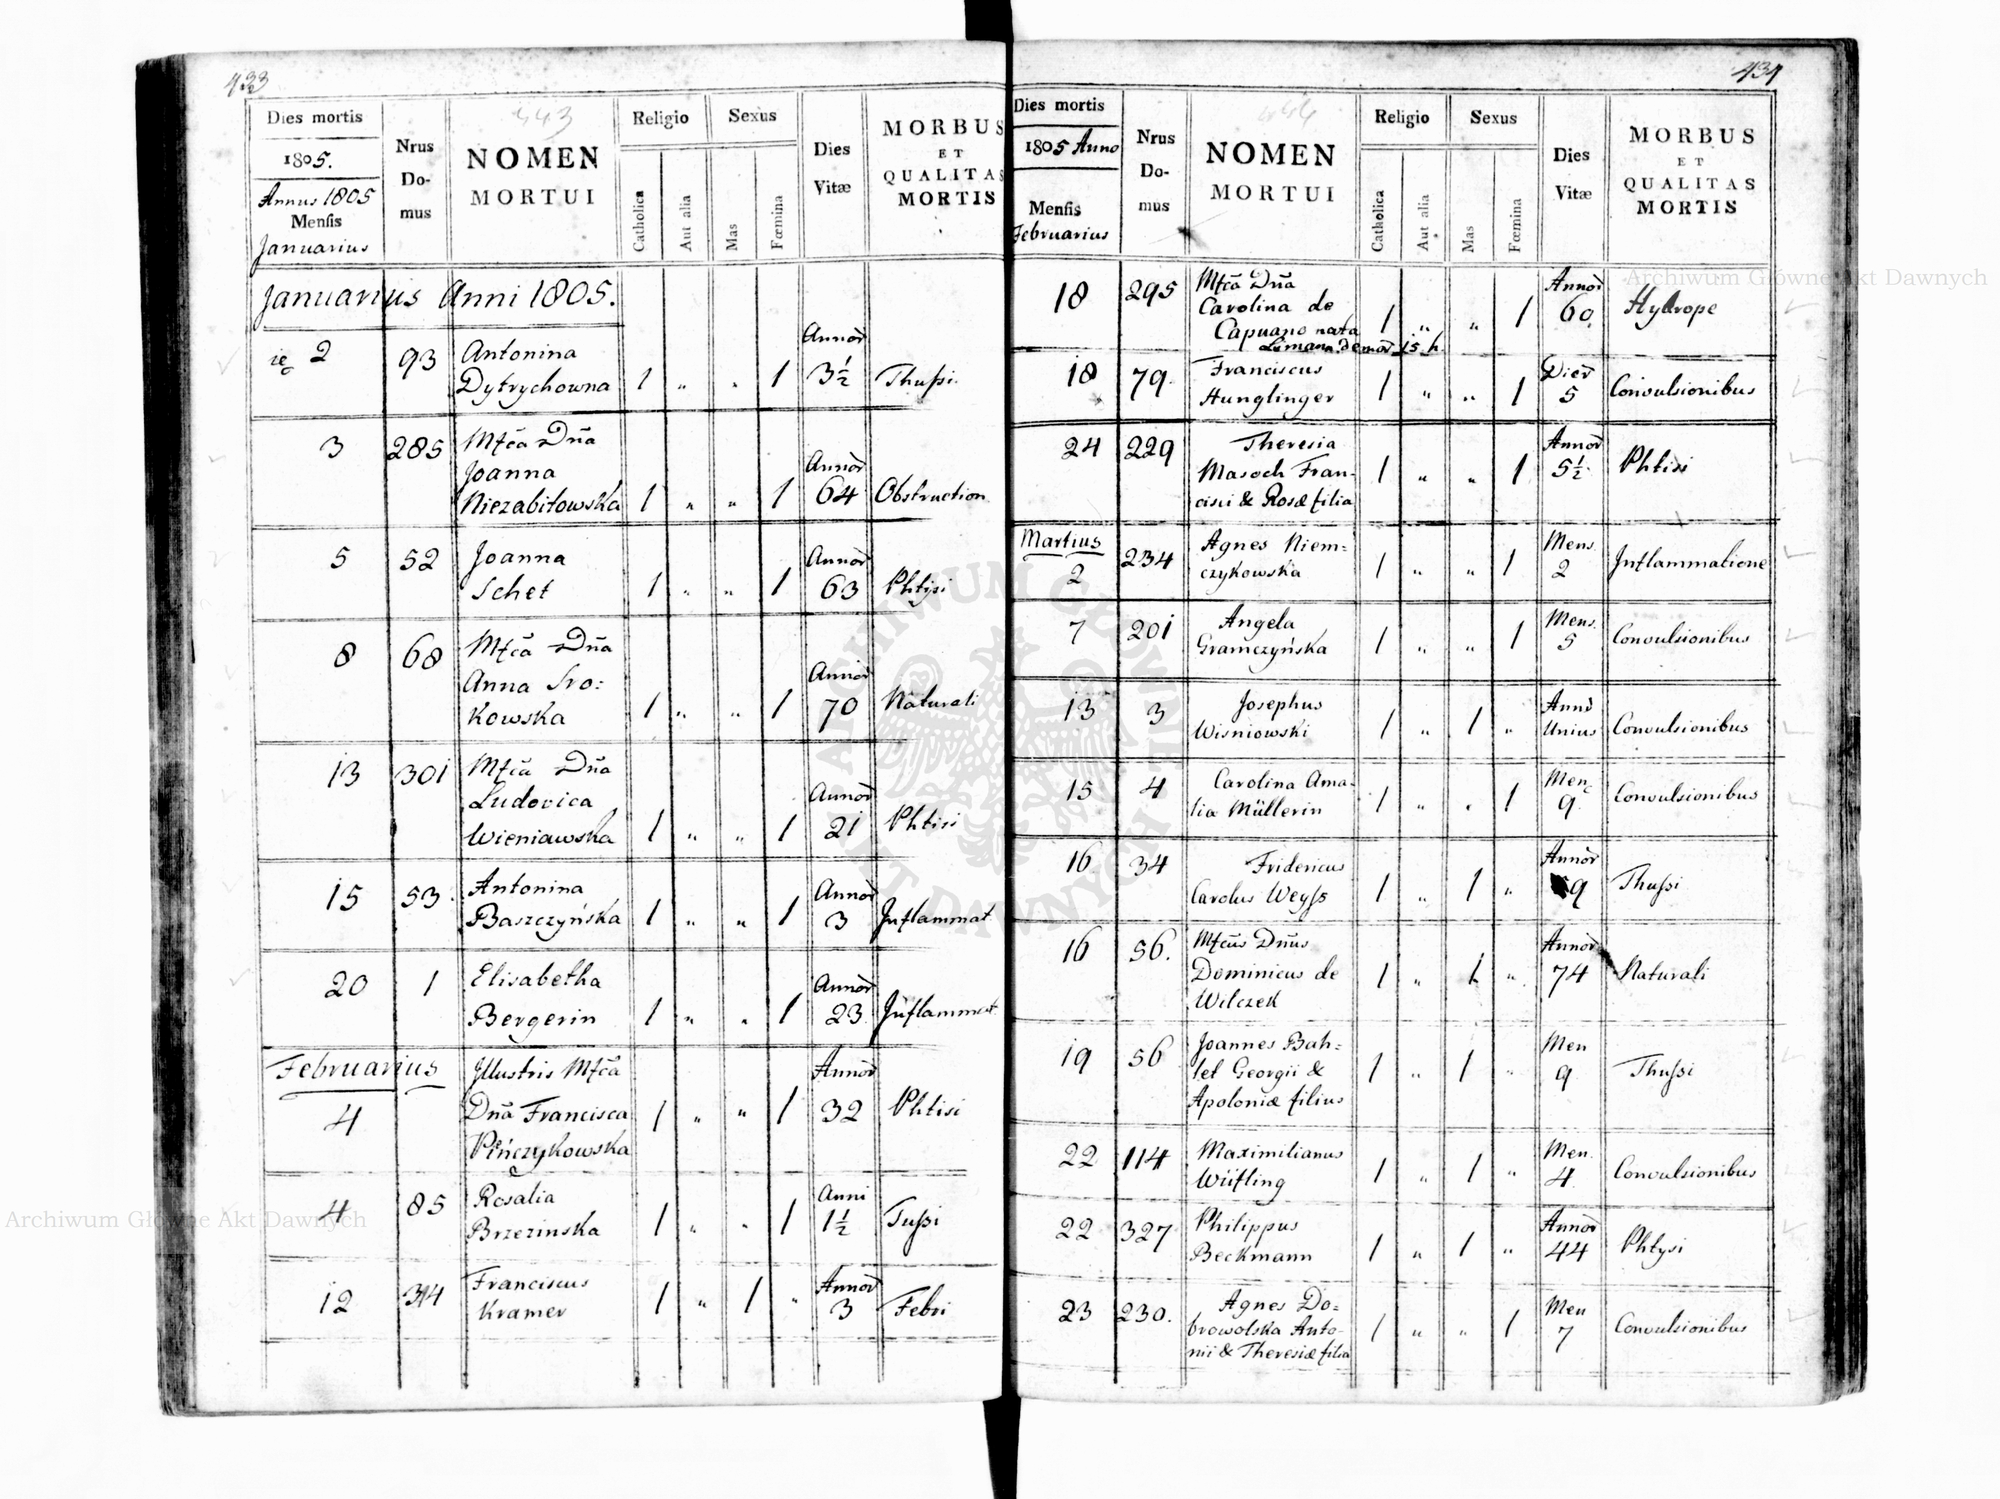 433
Dies mortis
1805.
Annus 1805
Mensis
Januarius
Nrus
Do-
mus
443
NOMEN
MORTUI
Religio
Catholica
Aut alia
Sexus
Mas
Fœmina
Dies
Vitæ
MORBUS
ET
QUALITAS
MORTIS
Januarius Anni 1805.
2 93 Antonina
Dytrychowna 1 „ „ 1 Annor 3½ Thuſsi
3 285 Mfcã Dña
Joanna
Niezabitowska 1 „ „ 1 Annor 64 Obstruction
5 52 Joanna
Schet 1 „ „ 1 Annor 63 Phtysi
8 68 Mfcã Dña
Anna Sro=
kowska 1 „ „ 1 Annor 70 Naturali
13 301 Mfcã Dña
Ludovica
Wieniawska 1 „ „ 1 Annor 21 Phtisi
15 53 Antonina
Baszczyńska 1 „ „ 1 Annor 3 Jnflammat
20 1 Elisabetha
Bergerin 1 „ „ 1 Annor 23 Jnflammat
Februarius
4 Jllustris Mfcã
Dña Francisca
Pińczykowska 1 „ „ 1 Annor 32 Phtisi
4 85 Rosalia
Brzezinska 1 „ „ 1 Anni 1½ Tuſsi
12 314 Franciscus
Kramer 1 „ 1 „ Annor 3 Febri
434
Dies mortis
1805 Anno
Mensis
Februarius
Nrus
Do-
mus
NOMEN
MORTUI
Religio
Catholica
Aut alia
Sexus
Mas
Fœmina
Dies
Vitæ
MORBUS
ET
QUALITAS
MORTIS
18 295 Mfcã Dña
Carolina de
Capuano nata
1 „ „ 1 Annor 60 Hydrope
18 79. Franciscus
Hunglinger 1 „ „ 1 Dier 5 Convulsionibus
24 229 Theresia
Masoch Fran-
cisci & Rosæ filia 1 „ „ 1 Annor 5½ Phtisi
Martius
2 234 Agnes Niem=
czykowska 1 „ „ 1 Mens. 2 Jnflammatione
7 201 Angela
Gramczyńska 1 „ „ 1 Mens. 5 Convulsionibus
13 3 Josephus
Wisniowski 1 „ 1 „ Anni Unius Convulsionibus
15 4 Carolina Ama-
lia Müllerin 1 „ „ 1 Men 9. Convulsionibus
16 34 Fridericus
Carolus Weyſs 1 „ 1 „ Annor 9 Thuſsi
16 56. Mfcus Dñus
Dominicus de
Wilczek 1 „ 1 „ Annor 74 Naturali
19 56 Joannes Bah=
lel Georgii &
Apoloniæ filius 1 „ 1 „ Men 9 Thuſsi
22 114 Maximilianus
Wüfling 1 „ 1 „ Men. 4. Convulsionibus
22 327 Philippus
Beckmann 1 „ 1 „ Annor 44 Phtysi
23 230. Agnes Do=
browolska Anto-
nii & Theresiæ filia 1 „ „ 1 Men 7 Convulsionibus
Archiwum Główne Akt Dawnych
Archiwum Główne Akt Dawnych
ARCHIWUM GŁÓWNE AKT DAWNYCH